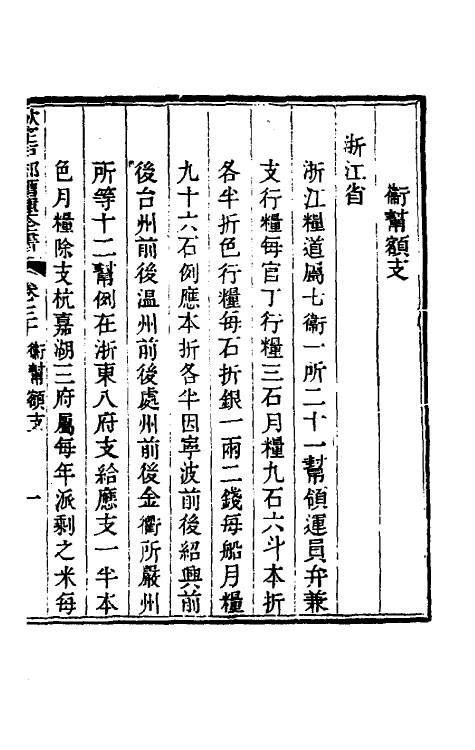 衛幫額支
浙江省
浙江糧道屬七衛一所二十一幫領運員弁兼
支行糧每官丁行糧三石月糧九石六斗本折
各半折色行糧每石折銀一兩二錢每船月糧
九十六石例應本折各半因寧波前後紹興前
後台州前後温州前後處州前後金衢所嚴州
所等十二幫例在浙東八府支給應支一半本
色月糧除支杭嘉湖三府屬每年派剩之米每
欽定戶部漕運全書 卷三十 衛幫額支 一